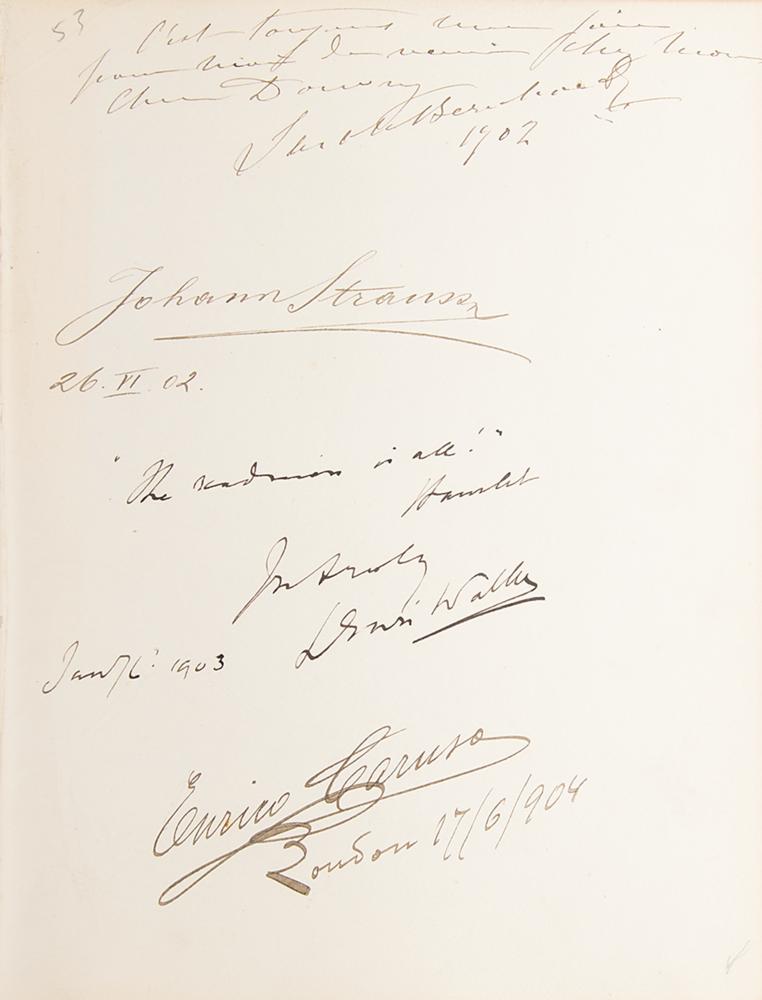 53
C'est toujours une joie
pour moi de venir chez mon
cher Downey
Sarah Bernhardt
1902
Johann Strauss
26. VI. 02.
"The readiness is all!"
Hamlet
Yrs truly
Waller
Jany 6th 1903
Enrico Caruso
London 17/6/904